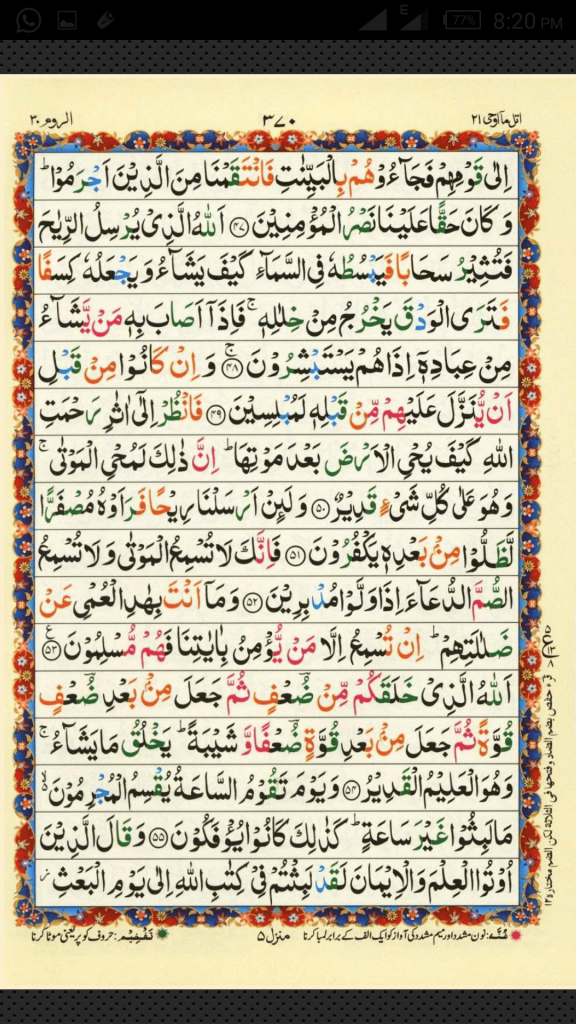 E
77%
8:20 PM
اتل مآ اوحی ۲۱
۳۷۰
الروم ۳۰
اِلٰى قَوْمِهِمْ فَجَآءُوْهُمْ بِالْبَيِّنٰتِ فَانْتَقَمْنَا مِنَ الَّذِيْنَ اَجْرَمُوْا ؕ
وَكَانَ حَقًّا عَلَيْنَا نَصْرُ الْمُؤْمِنِيْنَ ﴿۴۷﴾ اَللّٰهُ الَّذِيْ يُرْسِلُ الرِّيٰحَ
فَتُثِيْرُ سَحَابًا فَيَبْسُطُهٗ فِي السَّمَآءِ كَيْفَ يَشَآءُ وَيَجْعَلُهٗ كِسَفًا
فَتَرَى الْوَدْقَ يَخْرُجُ مِنْ خِلٰلِهٖ ۚ فَاِذَآ اَصَابَ بِهٖ مَنْ يَّشَآءُ
مِنْ عِبَادِهٖٓ اِذَا هُمْ يَسْتَبْشِرُوْنَ ﴿۴۸﴾ۚ وَاِنْ كَانُوْا مِنْ قَبْلِ
اَنْ يُّنَزَّلَ عَلَيْهِمْ مِّنْ قَبْلِهٖ لَمُبْلِسِيْنَ ﴿۴۹﴾ فَانْظُرْ اِلٰٓى اٰثٰرِ رَحْمَتِ
اللّٰهِ كَيْفَ يُحْيِ الْاَرْضَ بَعْدَ مَوْتِهَا ؕ اِنَّ ذٰلِكَ لَمُحْيِ الْمَوْتٰى ۚ
وَهُوَ عَلٰى كُلِّ شَيْءٍ قَدِيْرٌ ﴿۵۰﴾ وَلَئِنْ اَرْسَلْنَا رِيْحًا فَرَاَوْهُ مُصْفَرًّا
لَّظَلُّوْا مِنْۢ بَعْدِهٖ يَكْفُرُوْنَ ﴿۵۱﴾ فَاِنَّكَ لَا تُسْمِعُ الْمَوْتٰى وَلَا تُسْمِعُ
الصُّمَّ الدُّعَآءَ اِذَا وَلَّوْا مُدْبِرِيْنَ ﴿۵۲﴾ وَمَآ اَنْتَ بِهٰدِ الْعُمْيِ عَنْ
ضَلٰلَتِهِمْ ؕ اِنْ تُسْمِعُ اِلَّا مَنْ يُّؤْمِنُ بِاٰيٰتِنَا فَهُمْ مُّسْلِمُوْنَ ﴿۵۳﴾ع
اَللّٰهُ الَّذِيْ خَلَقَكُمْ مِّنْ ضُعْفٍ ثُمَّ جَعَلَ مِنْۢ بَعْدِ ضُعْفٍ
قُوَّةً ثُمَّ جَعَلَ مِنْۢ بَعْدِ قُوَّةٍ ضُعْفًا وَّشَيْبَةً ؕ يَخْلُقُ مَا يَشَآءُ ۚ
وَهُوَ الْعَلِيْمُ الْقَدِيْرُ ﴿۵۴﴾ وَيَوْمَ تَقُوْمُ السَّاعَةُ يُقْسِمُ الْمُجْرِمُوْنَ ۙ۬
مَا لَبِثُوْا غَيْرَ سَاعَةٍ ؕ كَذٰلِكَ كَانُوْا يُؤْفَكُوْنَ ﴿۵۵﴾ وَقَالَ الَّذِيْنَ
اُوْتُوا الْعِلْمَ وَالْاِيْمَانَ لَقَدْ لَبِثْتُمْ فِيْ كِتٰبِ اللّٰهِ اِلٰى يَوْمِ الْبَعْثِ ز
قرء حفص بضم الضاد وفتحها فی الثلاثة لکن الضم مختار ۱۲
غُنَّہ: نون مشدد اور میم مشدد کی آواز کو ایک الف کے برابر لمبا کرنا
منزل ۵
تَفْخِیْم: حروف کو پُر یعنی موٹا کرنا